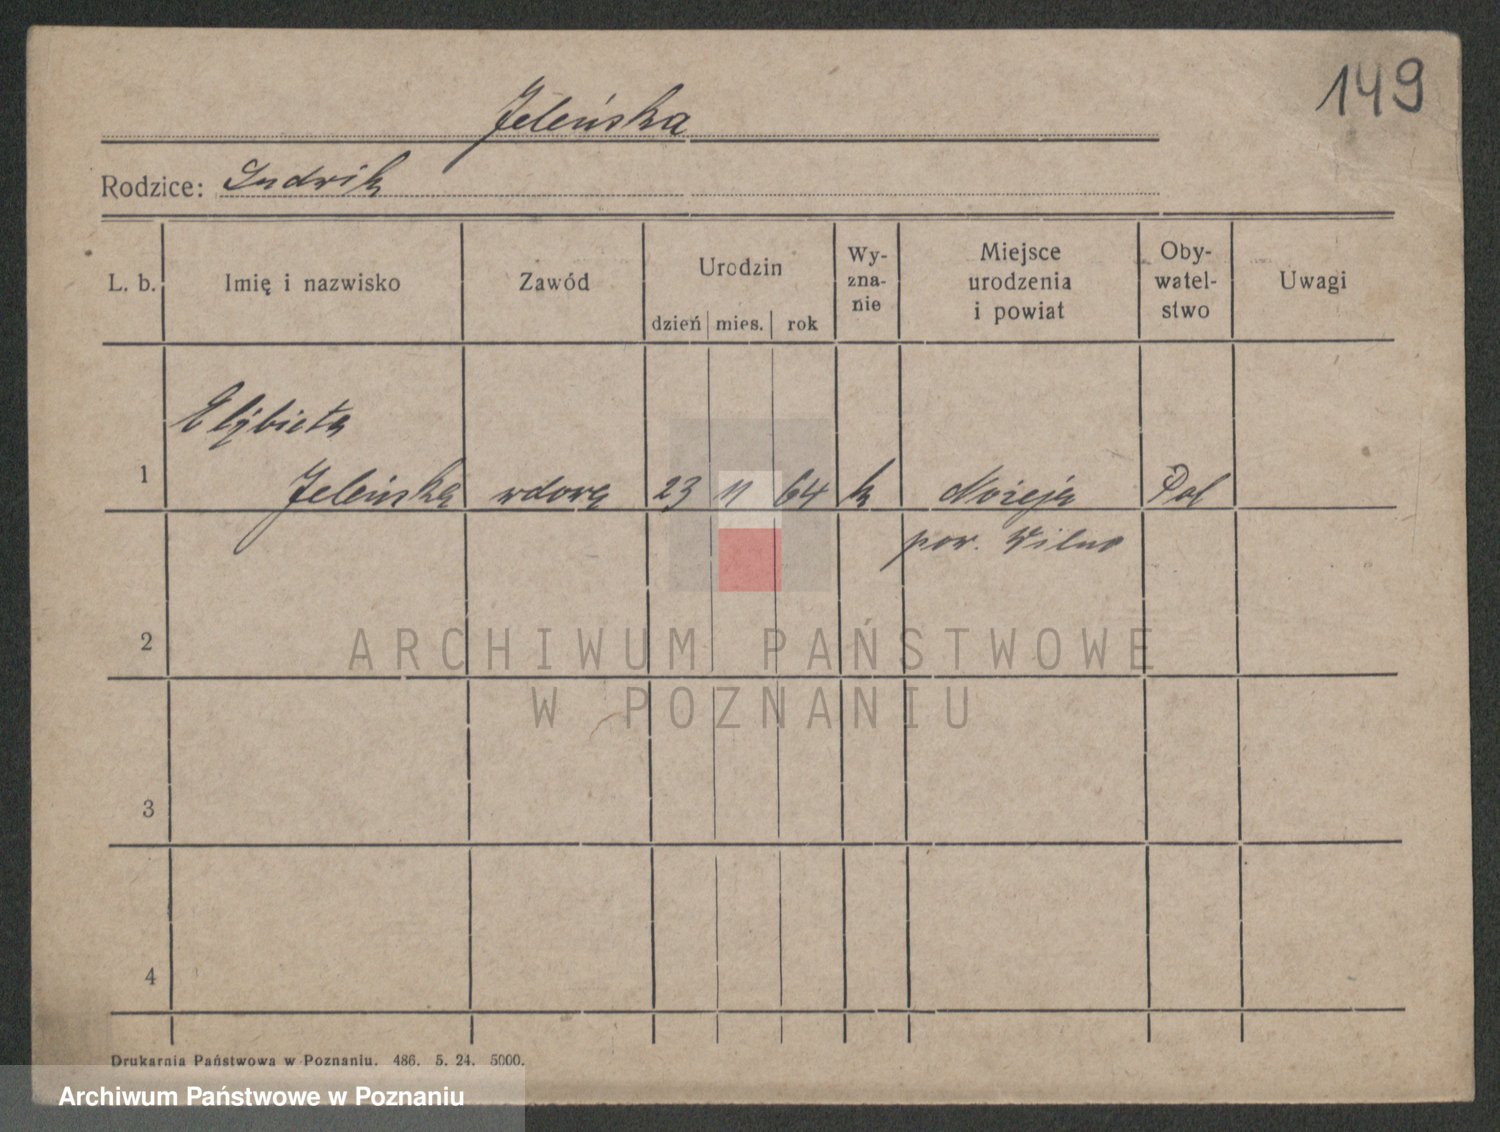 149
Jeleńska
Rodzice: Ludwik
L. b.
Imię i nazwisko
Zawód
Urodzin
dzień mies. rok
Wy-
zna-
nie
Miejsce
urodzenia
i powiat
Oby-
watel-
stwo
Uwagi
Elżbieta
1 Jeleńska wdowa 23 11 64 k Pol
pow. Wilno
2
3
4
ARCHIWUM PAŃSTWOWE
W POZNANIU
Drukarnia Państwowa w Poznaniu. 486. 5. 24. 5000.
Archiwum Państwowe w Poznaniu